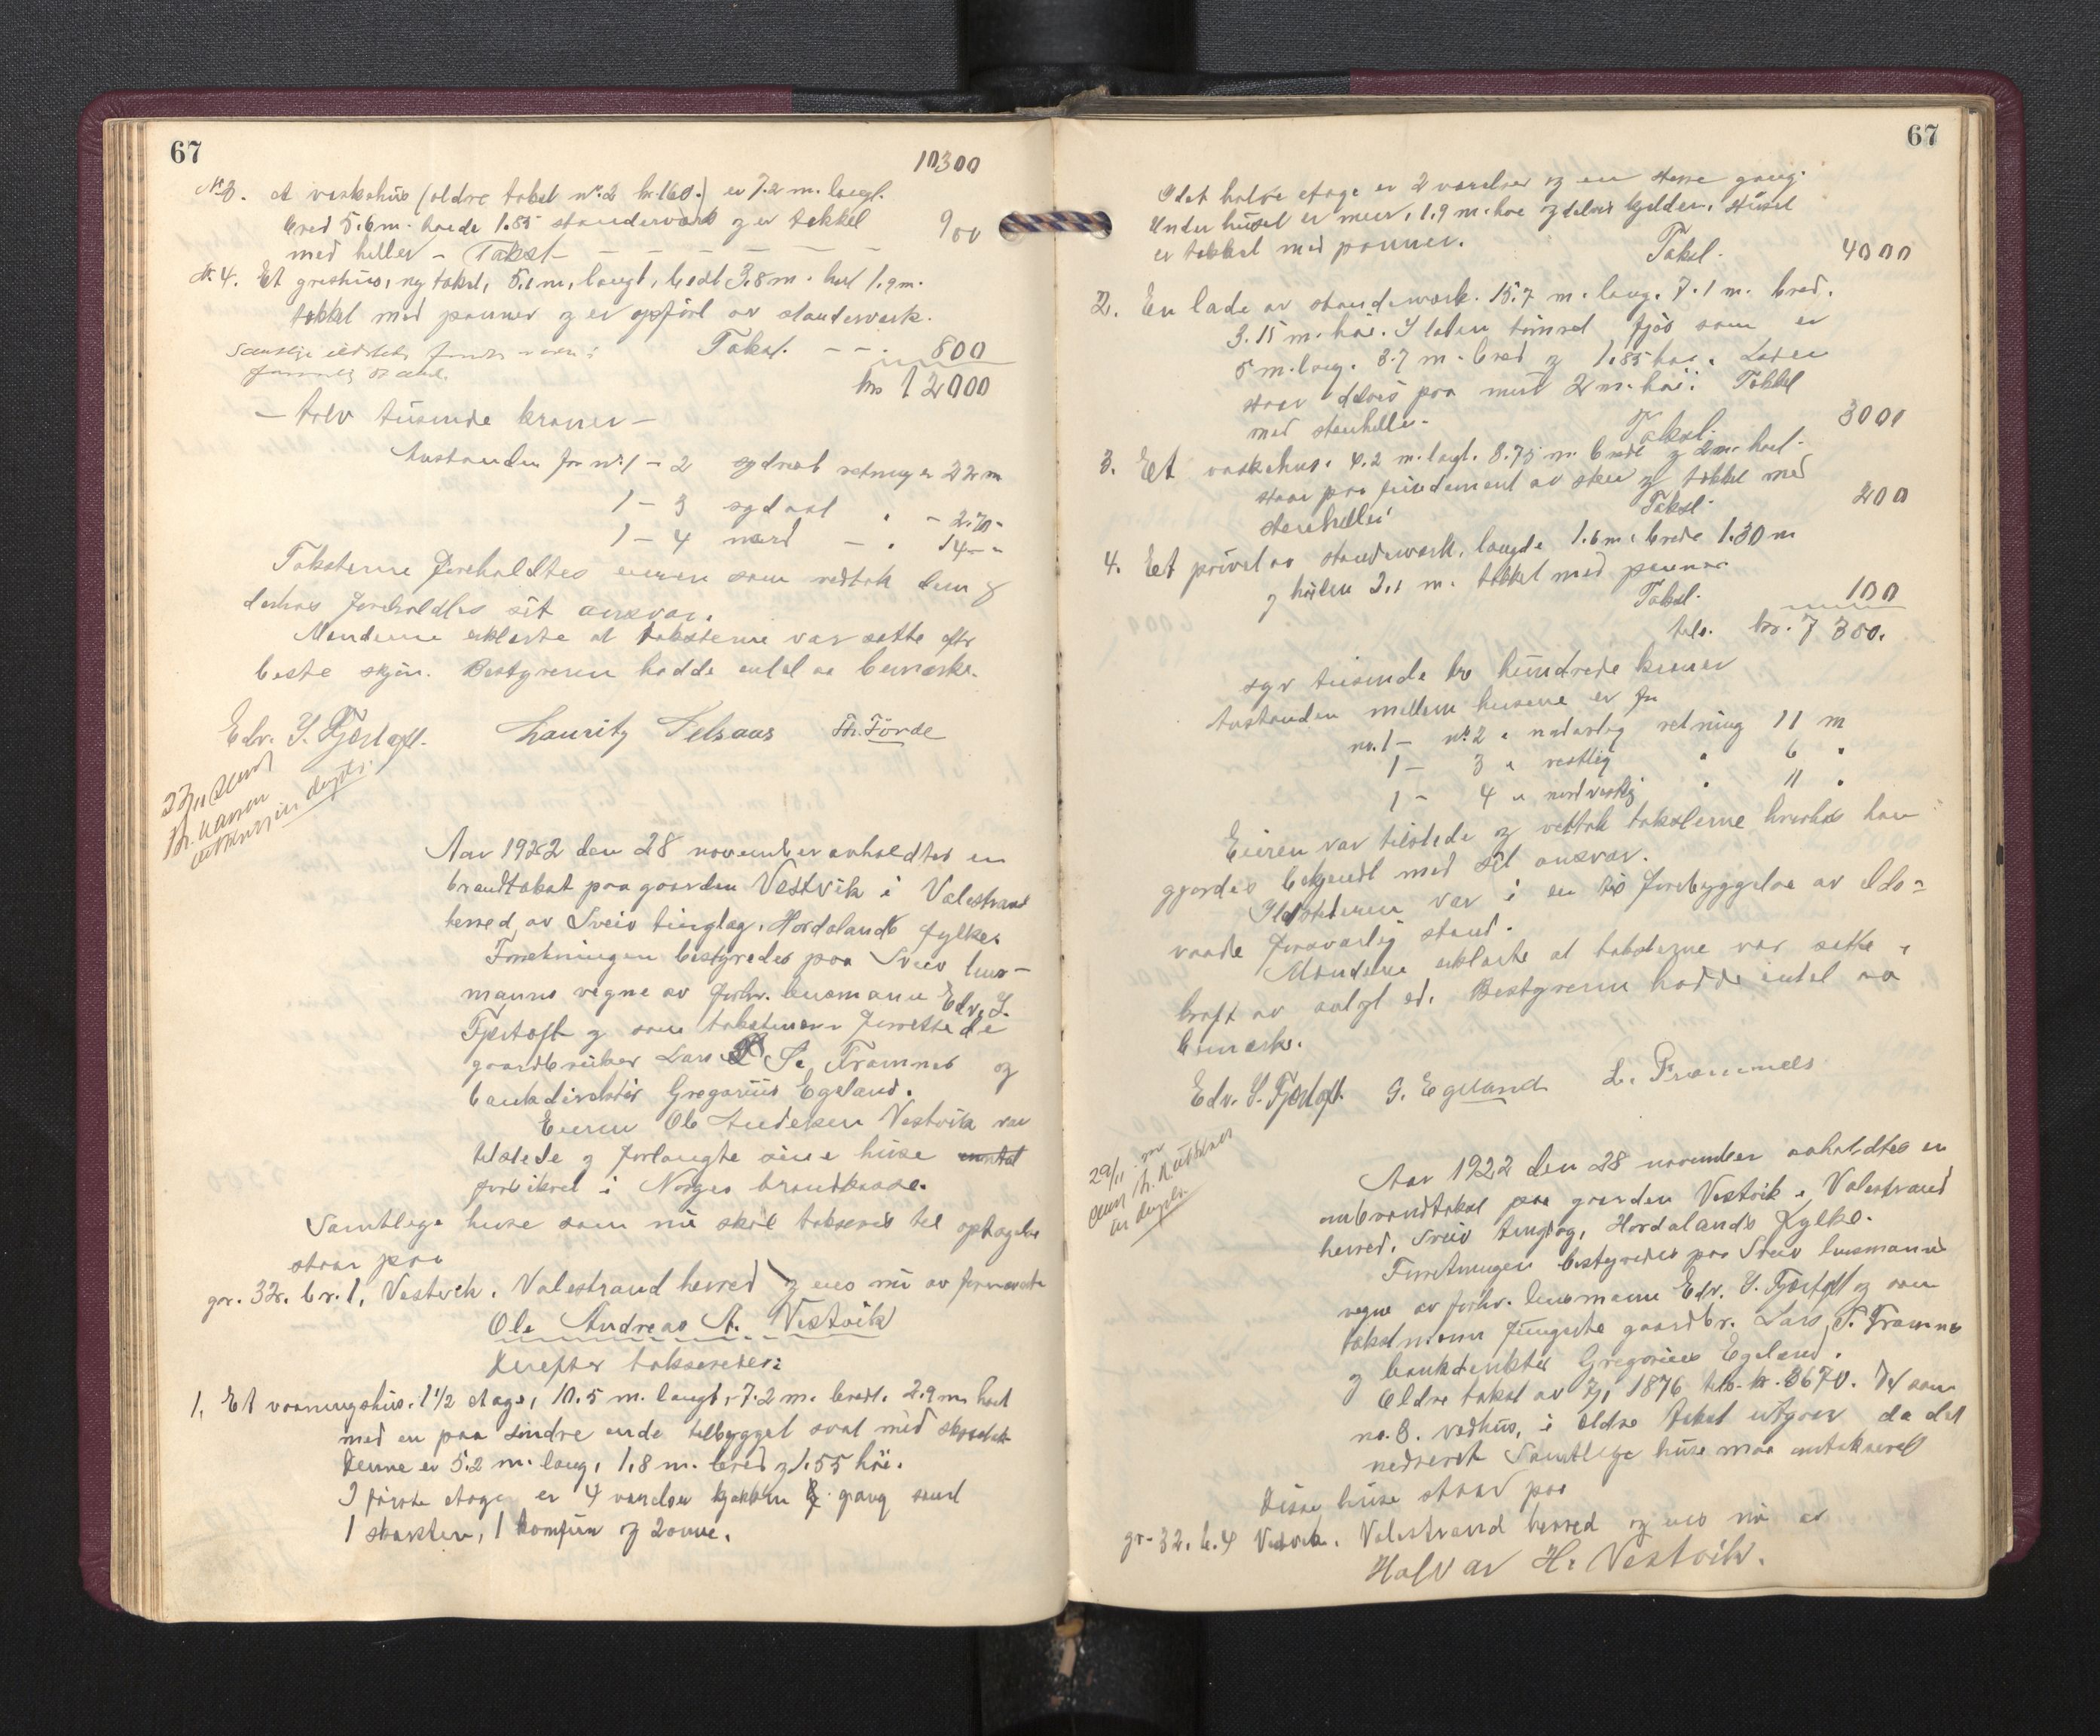 67
10300
Nr 3. et vaskehus (ældre takst nr. 2 kr. 160.) er 7.2 m. langt.
bred 5.6 m. høide 1.85 standerverk og er tekket
med heller - Takst - 900
Nr. 4. Et grishus, ny takst, 5.1 m. langt, bredt 3.8 m. høit 1.9 m.
tekket med panner og er opført av standerverk.
Takst. - - . 800
kr 12000
- tolv tusende kroner -
Avstanden fra nr. 1 - 2 sydvest retning er 22 m
1 - 3 sydost " - 2.70 -
1 - 4 nord - " 14 - "
Taksterne foreholdtes eieren som vedtok dem og
derhos foreholdtes sit ansvar.
Mændene erklærte at taksterne var satte efter
beste skjøn. Bestyreren hadde intet at bemerke.
Edv. S. Fjørtoft. Lauritz Aelsaas Th. Førde
Aar 1922 den 28 november avholdtes en
brandtakst paa gaarden Vestvik i Valestrand
herred av Sveio tinglag, Hordalands fylke.
Forretningen bestyredes paa Sveio lens-
manns vegne av forhv. lensmann Edv. S.
Fjørtoft og som takstmenn forrettede
gaardbruker Lars S. Framnes og
bankdirektør Gregorius Egeland.
Eieren Ole Andreas Vestvik var
tilstede og forlangte sine huse
forsikret i Norges brandkasse.
Samtlige huse som nu skal takseres til optagelse
staar paa
gr. 32. br. 1, Vestvik. Valestrand herred og eies nu av fornævnte
Ole Andreas A. Vestvik
Derefter takseredes:
1. Et vaaningshus. 1 1/2 etage, 10.5 m. langt, 7.2 m. bredt. 2.9 m. høit
med en paa søndre ende tilbygget sval med skraatak
Denne er 5.2 m. lang, 1.8 m. bred og 1.55 høi.
I første etage er 4 værelser kjøkken og gang samt
1 skorsten, 1 komfur og 2 ovne.
67
I det halve etage er 2 værelser og en større gang.
Under huset er mur, 1.9 m. høi og delvis kjelder. Huset
er tekket med panner. Takst. 4000
2. En lade av standerverk. 15.7 m. lang. 7.1 m. bred.
3.15 m. høi. I laden tømret fjøs som er
5 m. lang. 3.7 m. bred og 1.85 høi. Laden
staar delvis paa mur 2 m. høi. Tekket
med stenheller. Takst. 3000
3. Et vaskehus. 4.2 m. langt. 3.75 m. bredt og 2 m. høit.
staar paa fundament av sten og tekket med
stenheller Takst. 200
4. Et privet av standerverk, længde 1.6 m. brede 1.30 m
og høiden 2.1 m. tekket med panner
Takst. 100
tils. kr. 7 300.
syv tusinde tre hundrede kroner
Avstanden mellem husene er fra
nr. 1 - nr. 2 i nordostlig retning 11 m
1 - 3 i vestlig " 6 "
1 - 4 i nordvestlig " 11 "
Eieren var tilstede og vedtok taksterne hvorhos han
gjordes bekjendt med sit ansvar.
Ildstederne var i en til forebyggelse av ilds-
vaade forsvarlig stand.
Mændene erklærte at taksterne var satte i
kraft av avlagt ed. Bestyreren hadde intet at
bemerke.
Edv. S. Fjørtoft. G. Egeland L. Frammes
Aar 1922 den 28 november avholdtes en
ombrandtakst paa gaarden Vestvik i Valestrand
herred, Sveio tinglag, Hordalands Fylke.
Forretningen bestyredes paa Sveio lensmanns
vegne av forhv. lensmann Edv. S. Fjørtoft og som
takstmenn fungerte gaardbr. Lars S. Framnes
og bankdirektør Gregorius Egeland.
Ældre takst av 1876 tils. kr. 3670. Det som
no. 3. vedhus, i ældre takst utgaar da det
nedrevet Samtlige huse maa omtakseres
Disse huse staar paa
gr. 32. b. 4 Vestvik. Valestrand herred og eies nu av
Halvar H. Vestvik.